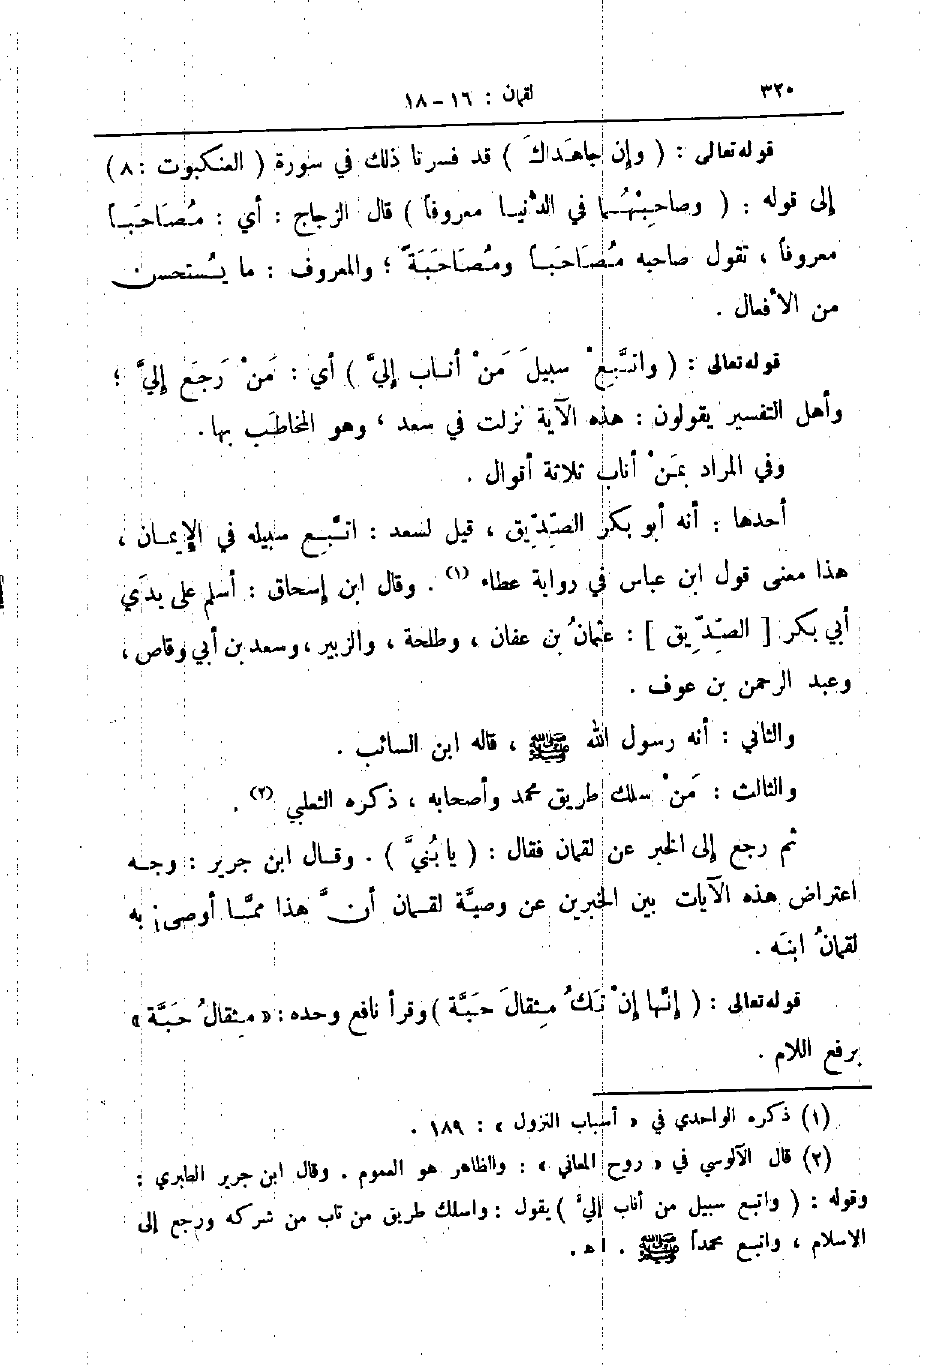 ٣٢٠
لقمان : ١٦-١٨
قوله تعالى : ( وإن جاهَداكَ ) قد فسرنا ذلك في سورة ( العنكبوت : ٨ )
إلى قوله : ( وصاحِبْهُما في الدُّنيا معروفاً ) قال الزجاج : أي : مُصَاحَباً
معروفاً ، تقول صاحبه مُصَاحَباً ومُصَاحَبَةً ؛ والمعروف : ما يُستحسن
من الأفعال .
قوله تعالى : ( واتَّبِعْ سبيلَ مَنْ أناب إليَّ ) أي : مَنْ رَجَع إليَّ ؛
وأهل التفسير يقولون : هذه الآية نزلت في سعد ، وهو المخاطَب بها .
وفي المراد بمَنْ أناب ثلاثة أقوال .
أحدها : أنه أبو بكر الصِّدِّيق ، قيل لسعد : اتَّبِع سبيله في الإيمان ،
هذا معنى قول ابن عباس في رواية عطاء (١) . وقال ابن إسحاق : أسلم على يدَي
أبي بكر [ الصِّدِّيق ] : عثمانُ بن عفان ، وطلحة ، والزبير ، وسعد بن أبي وقاص ،
وعبد الرحمن بن عوف .
والثاني : أنه رسول الله ﷺ ، قاله ابن السائب .
والثالث : مَنْ سلك طريق محمد وأصحابه ، ذكره الثعلبي (٢) .
ثم رجع إلى الخبر عن لقمان فقال : ( يا بُنيَّ ) . وقال ابن جرير : وجه
اعتراض هذه الآيات بين الخبرين عن وصيَّة لقمان أنَّ هذا ممَّا أوصى به
لقمانُ ابنَه .
قوله تعالى : ( إنَّها إنْ تَكُ مِثقالَ حَبَّة ) وقرأ نافع وحده : « مِثقالُ حَبَّة »
برفع اللام .
(١) ذكره الواحدي في « أسباب النزول » : ١٨٩ .
(٢) قال الآلوسي في « روح المعاني » : والظاهر هو العموم . وقال ابن جرير الطبري :
وقوله : ( واتبع سبيل من أناب إليَّ ) يقول : واسلك طريق من تاب من شركه ورجع إلى
الاسلام ، واتبع محمداً ﷺ . اه .